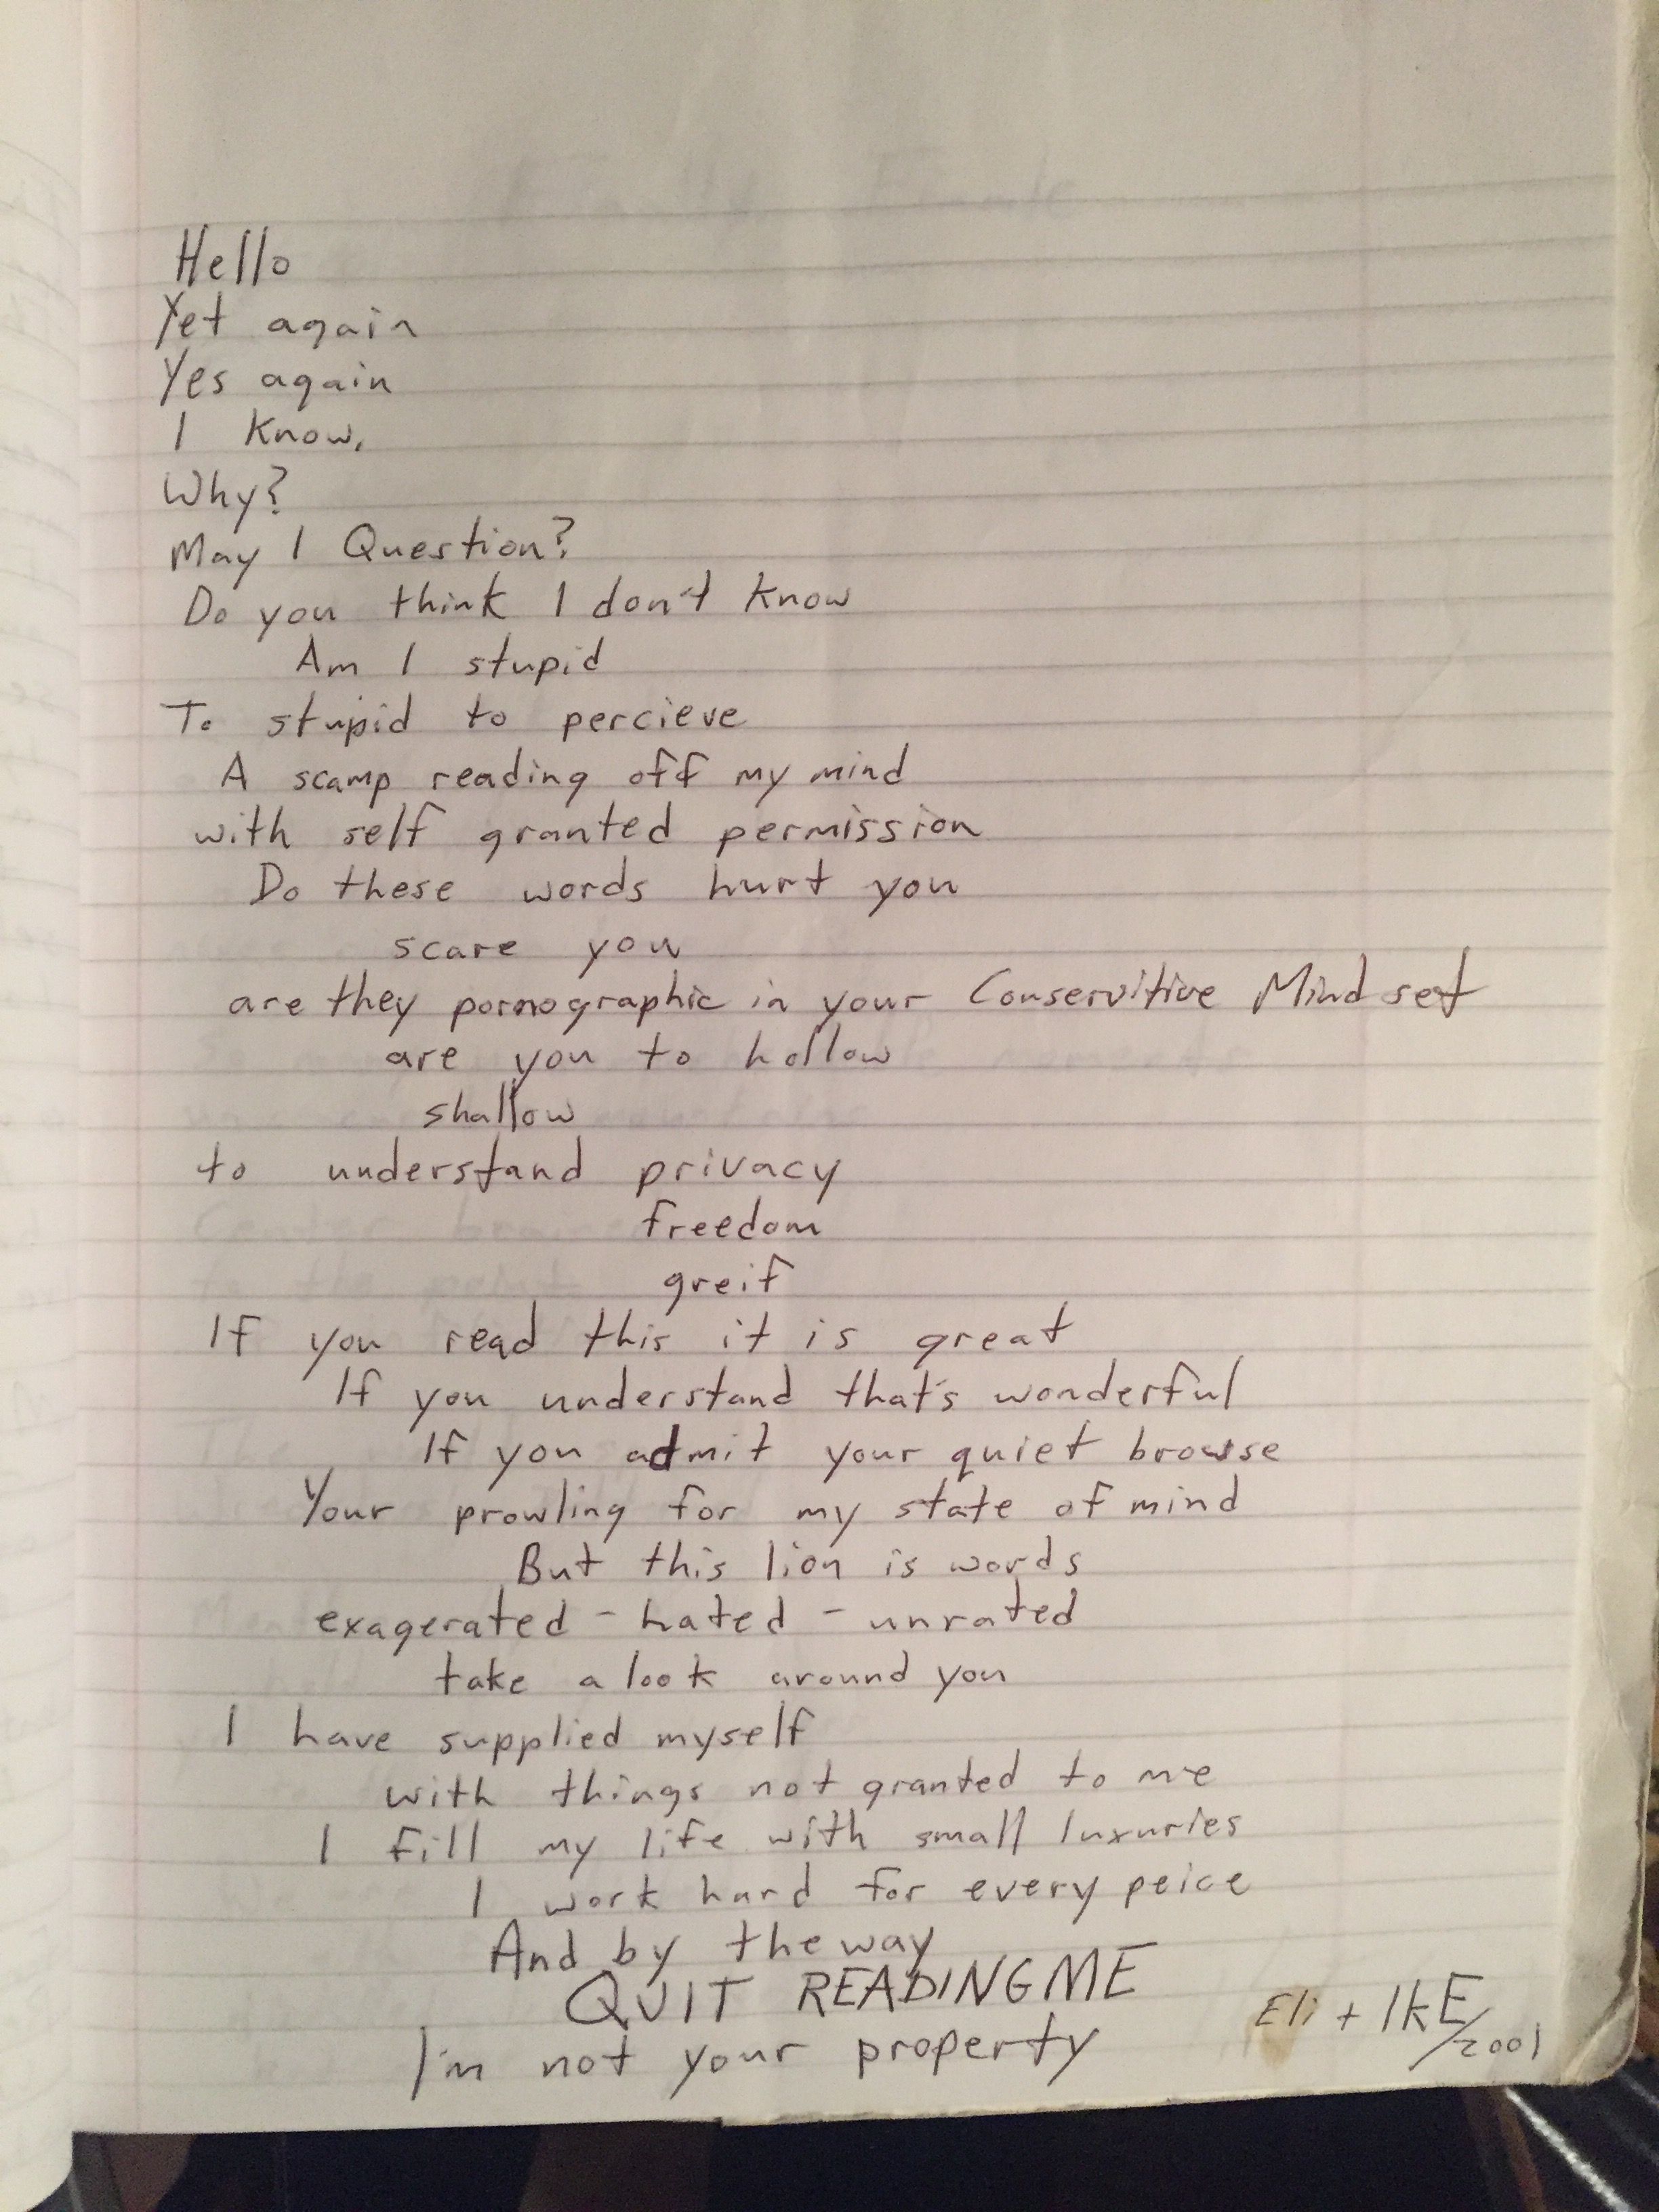 Hello
Yet again
Yes again
I know,
Why?
May I Question?
Do you think I don't know
Am I stupid
To stupid to percieve
A scamp reading off my mind
with self granted permission
Do these words hurt you
scare you
are they pornographic in your Conservitive Mind set
are you to hollow
shallow
to understand privacy
freedom
greif
If you read this it is great
If you understand that's wonderful
If you admit your quiet browse
Your prowling for my state of mind
But this lion is words
exagerated - hated - unrated
take a look around you
I have supplied myself
with things not granted to me
I fill my life with small luxuries
I work hard for every peice
And by the way
QUIT READING ME
I'm not your property
Eli + IkE/2001